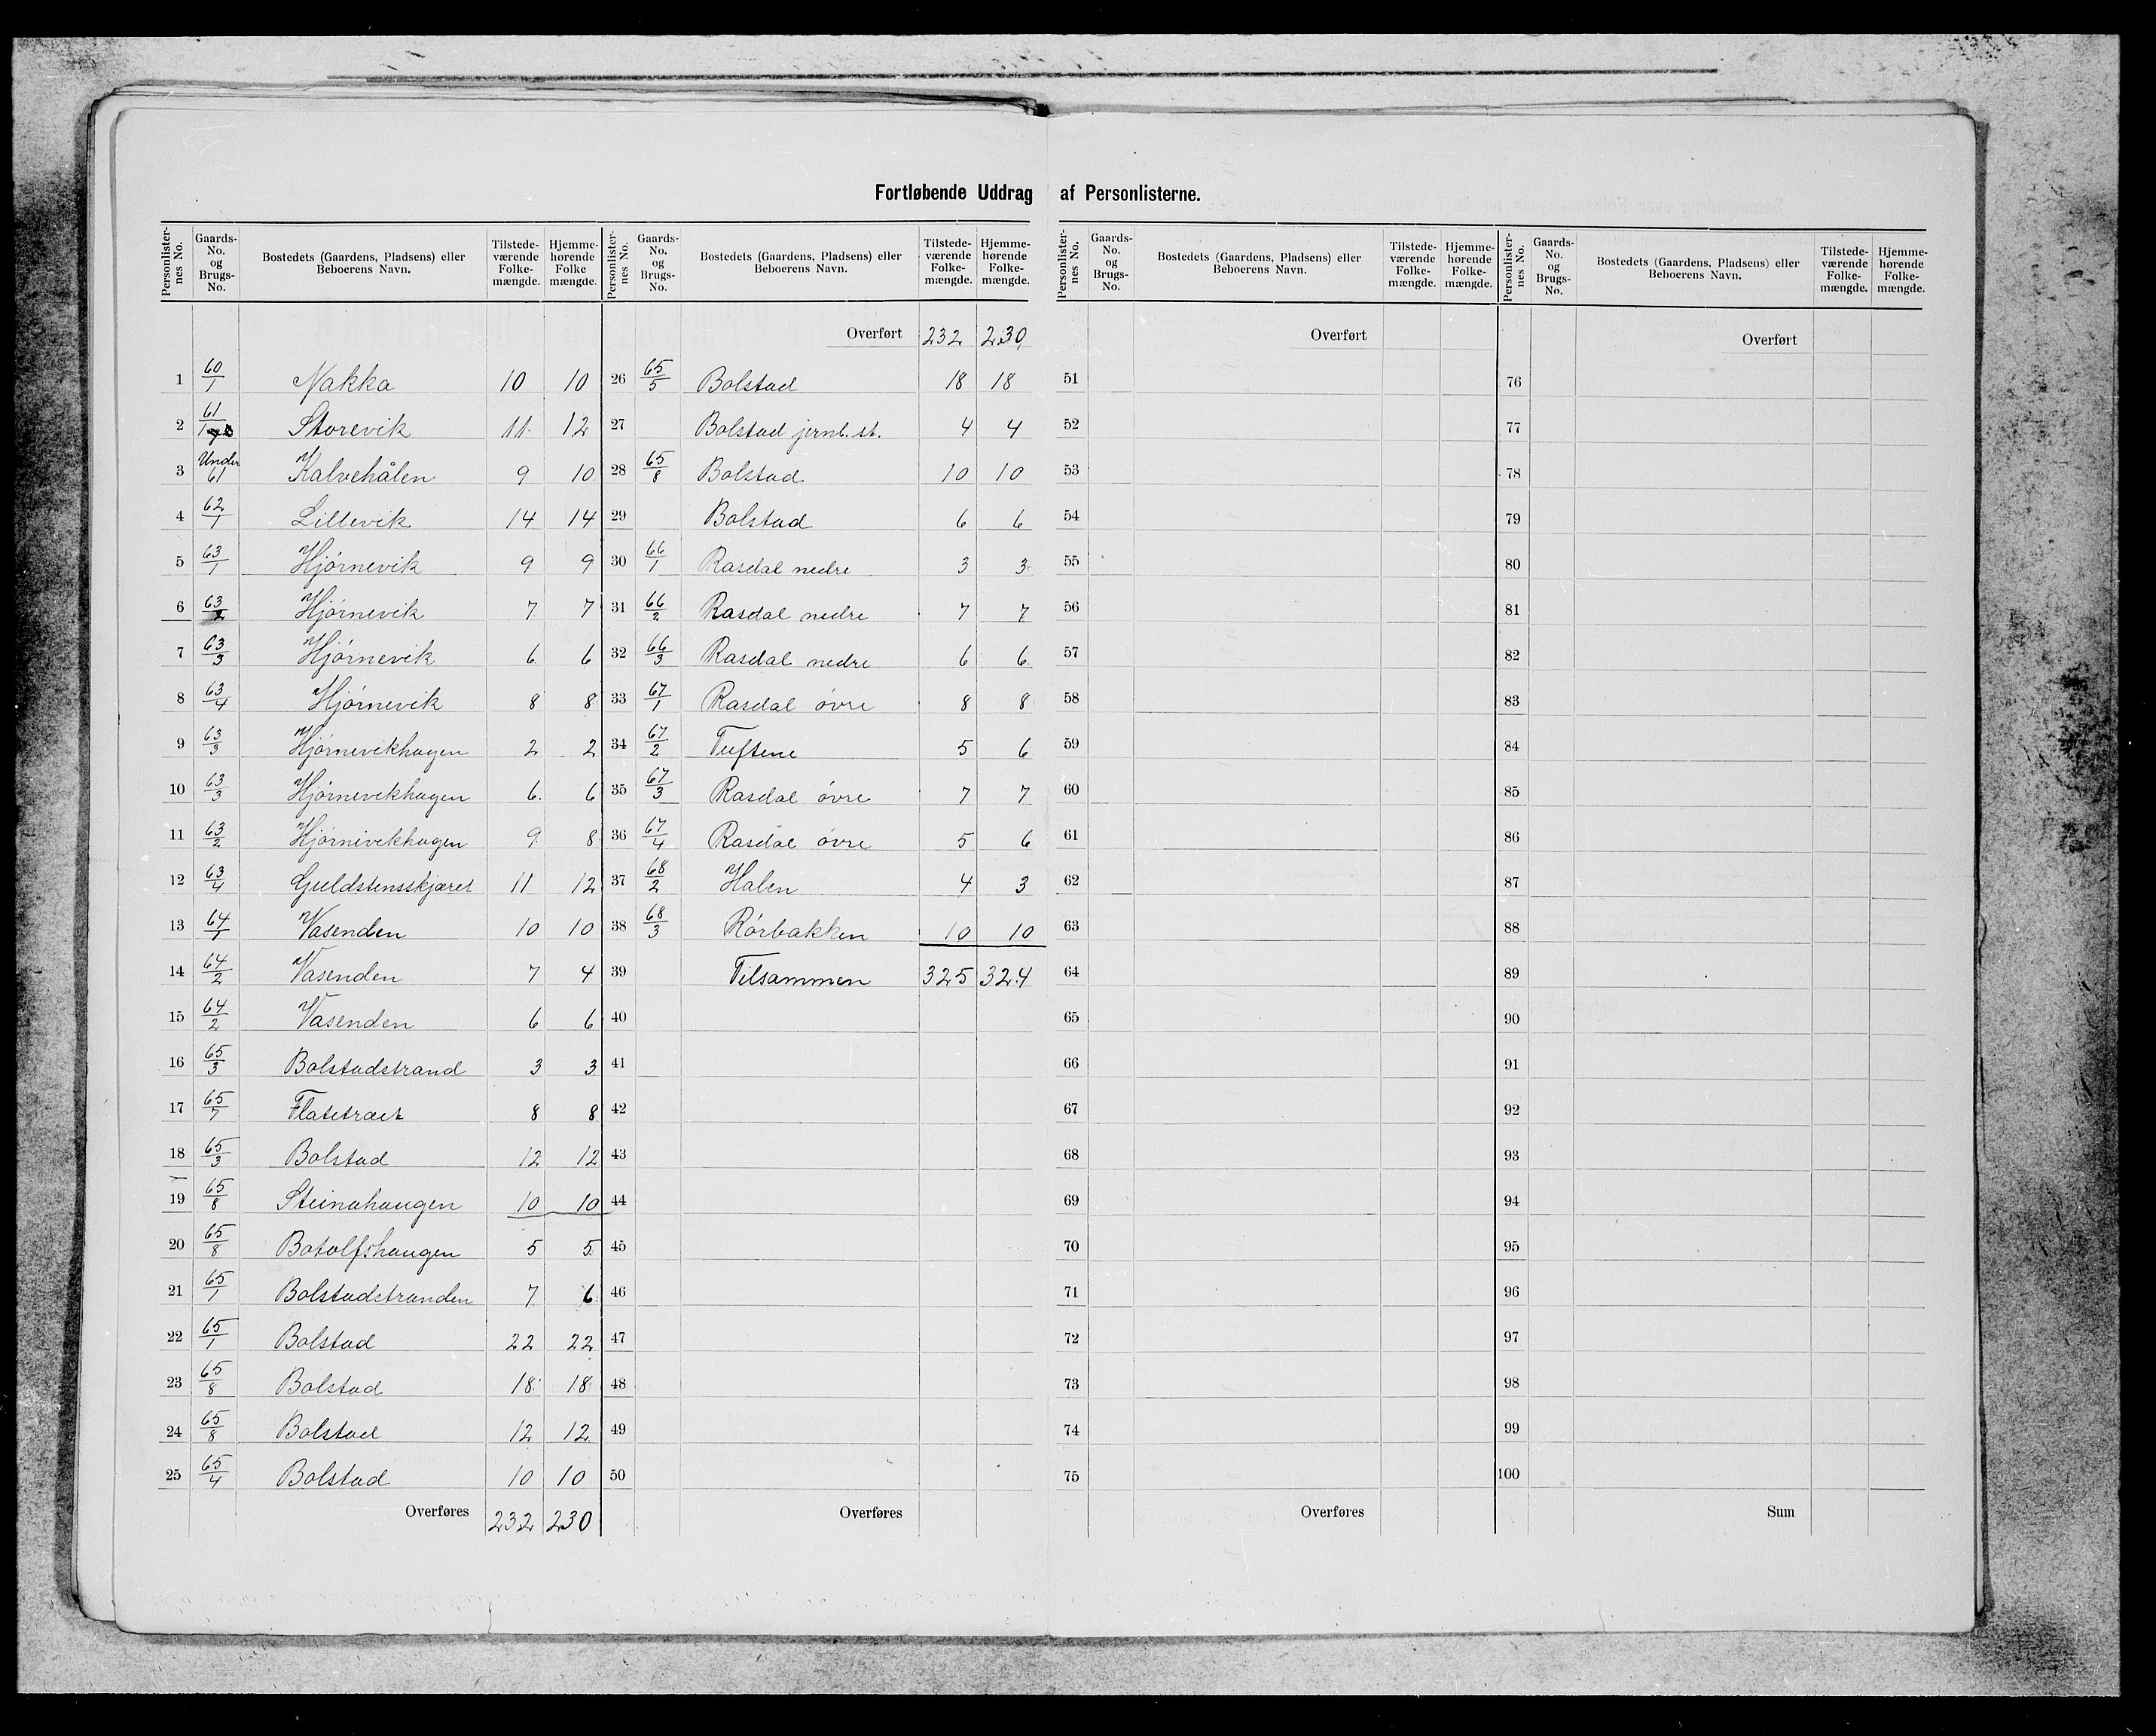 Fortløbende Uddrag af Personlisterne.
Personlister-nes No. | Gaards-No. og Brugs-No. | Bostedets (Gaardens, Pladsens) eller Beboerens Navn. | Tilstede-værende Folke-mængde. | Hjemme-hørende Folke mængde.
1 60/1 Nakka 10 10
2 61/1 Storevik 11 12
3 Under 61 Kalvehålen 9 10
4 62/1 Lillevik 14 14
5 63/1 Hjørnevik 9 9
6 63/2 Hjørnevik 7 7
7 63/3 Hjørnevik 6 6
8 63/4 Hjørnevik 8 8
9 63/3 Hjørnevikhagen 2 2
10 63/3 Hjørnevikhagen 6 6
11 63/2 Hjørnivikhagen 9 8
12 63/4 Guldstensskjæret 11 12
13 64/1 Vasenden 10 10
14 64/2 Vasenden 7 4
15 64/2 Vasenden 6 6
16 65/3 Bolstadstrand 3 3
17 65/7 Flatetræet 8 8
18 65/3 Bolstad 12 12
19 65/8 Steinahaugen 10 10
20 65/8 Botolfshaugen 5 5
21 65/1 Bolstadstranden 7 6
22 65/1 Bolstad 22 22
23 65/8 Bolstad 18 18
24 65/8 Bolstad 12 12
25 65/4 Bolstad 10 10
Overføres 232 230
Personlister-nes No. | Gaards-No. og Brugs-No. | Bostedets (Gaardens, Pladsens) eller Beboerens Navn. | Tilstede-værende Folke-mængde. | Hjemme-hørende Folke-mængde.
Overført 232 230
26 65/5 Bolstad 18 18
27 Bolstad jernb. st. 4 4
28 65/8 Bolstad 10 10
29 Bolstad 6 6
30 66/1 Rasdal nedre 3 3
31 66/2 Rasdal nedre 7 7
32 66/3 Rasdal nedre 6 6
33 67/1 Rasdal øvre 8 8
34 67/2 Tuftene 5 6
35 67/3 Rasdal øvre 7 7
36 67/4 Rasdal øvre 5 6
37 68/2 Halen 4 3
38 68/3 Rørbakken 10 10
39 Tilsammen 325 324
40
41
42
43
44
45
46
47
48
49
50
Overføres
Personlister-nes No. | Gaards-No. og Brugs-No. | Bostedets (Gaardens, Pladsens) eller Beboerens Navn. | Tilstede-værende Folke-mængde. | Hjemme-hørende Folke-mængde.
Overført
51
52
53
54
55
56
57
58
59
60
61
62
63
64
65
66
67
68
69
70
71
72
73
74
75
Overføres
Personlister-nes No. | Gaards-No. og Brugs-No. | Bostedets (Gaardens, Pladsens) eller Beboerens Navn. | Tilstede-værende Folke-mængde. | Hjemme-hørende Folke-mængde.
Overført
76
77
78
79
80
81
82
83
84
85
86
87
88
89
90
91
92
93
94
95
96
97
98
99
100
Sum